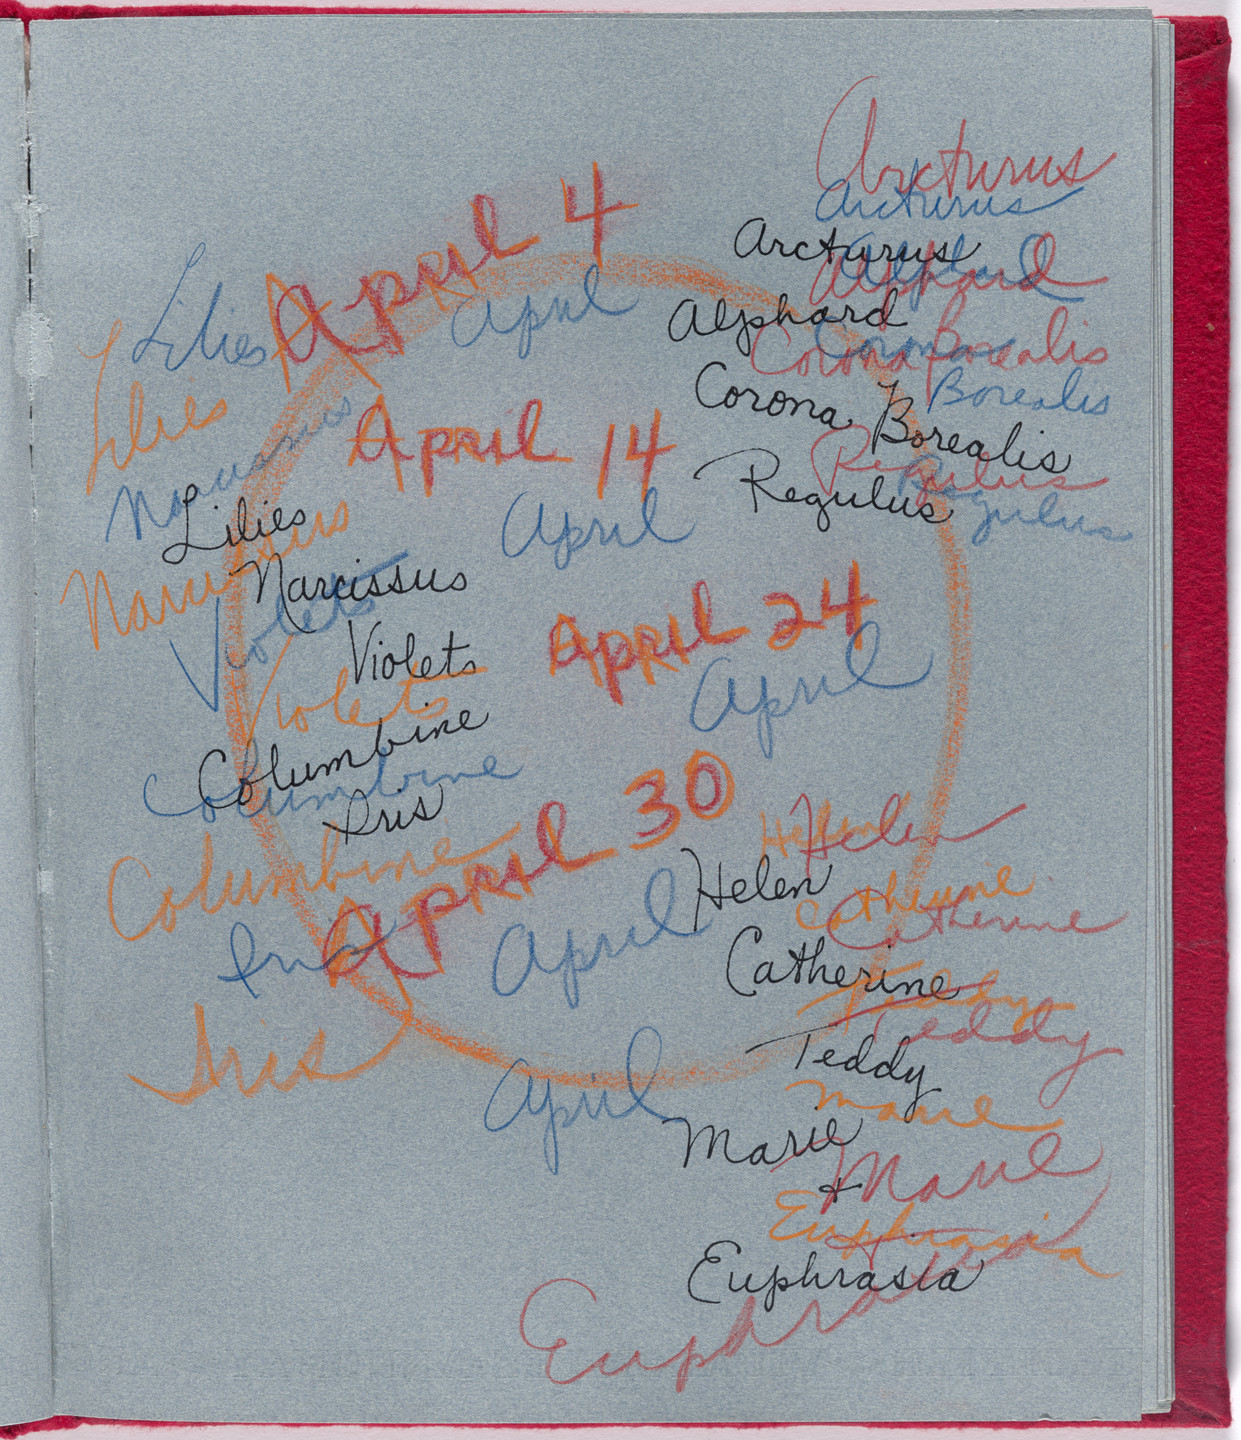 Arcturus
Arcturus
Arcturus
Alphard
Alphard
Alphard
Corona Borealis
Corona Borealis
Corona Borealis
Regulus
Regulus
Regulus
April 4
April
April 14
April
April 24
April
April 30
April
April
Lilies
Lilies
Narcissus
Lilies
Narcissus
Narcissus
Violets
Violets
Violets
Columbine
Columbine
Iris
Columbine
Iris
Iris
Helen
Helen
Helen
Catherine
Catherine
Catherine
Teddy
Teddy
Teddy
Marie
Marie
Marie
+
Euphrasia
+
Euphrasia
Euphrasia